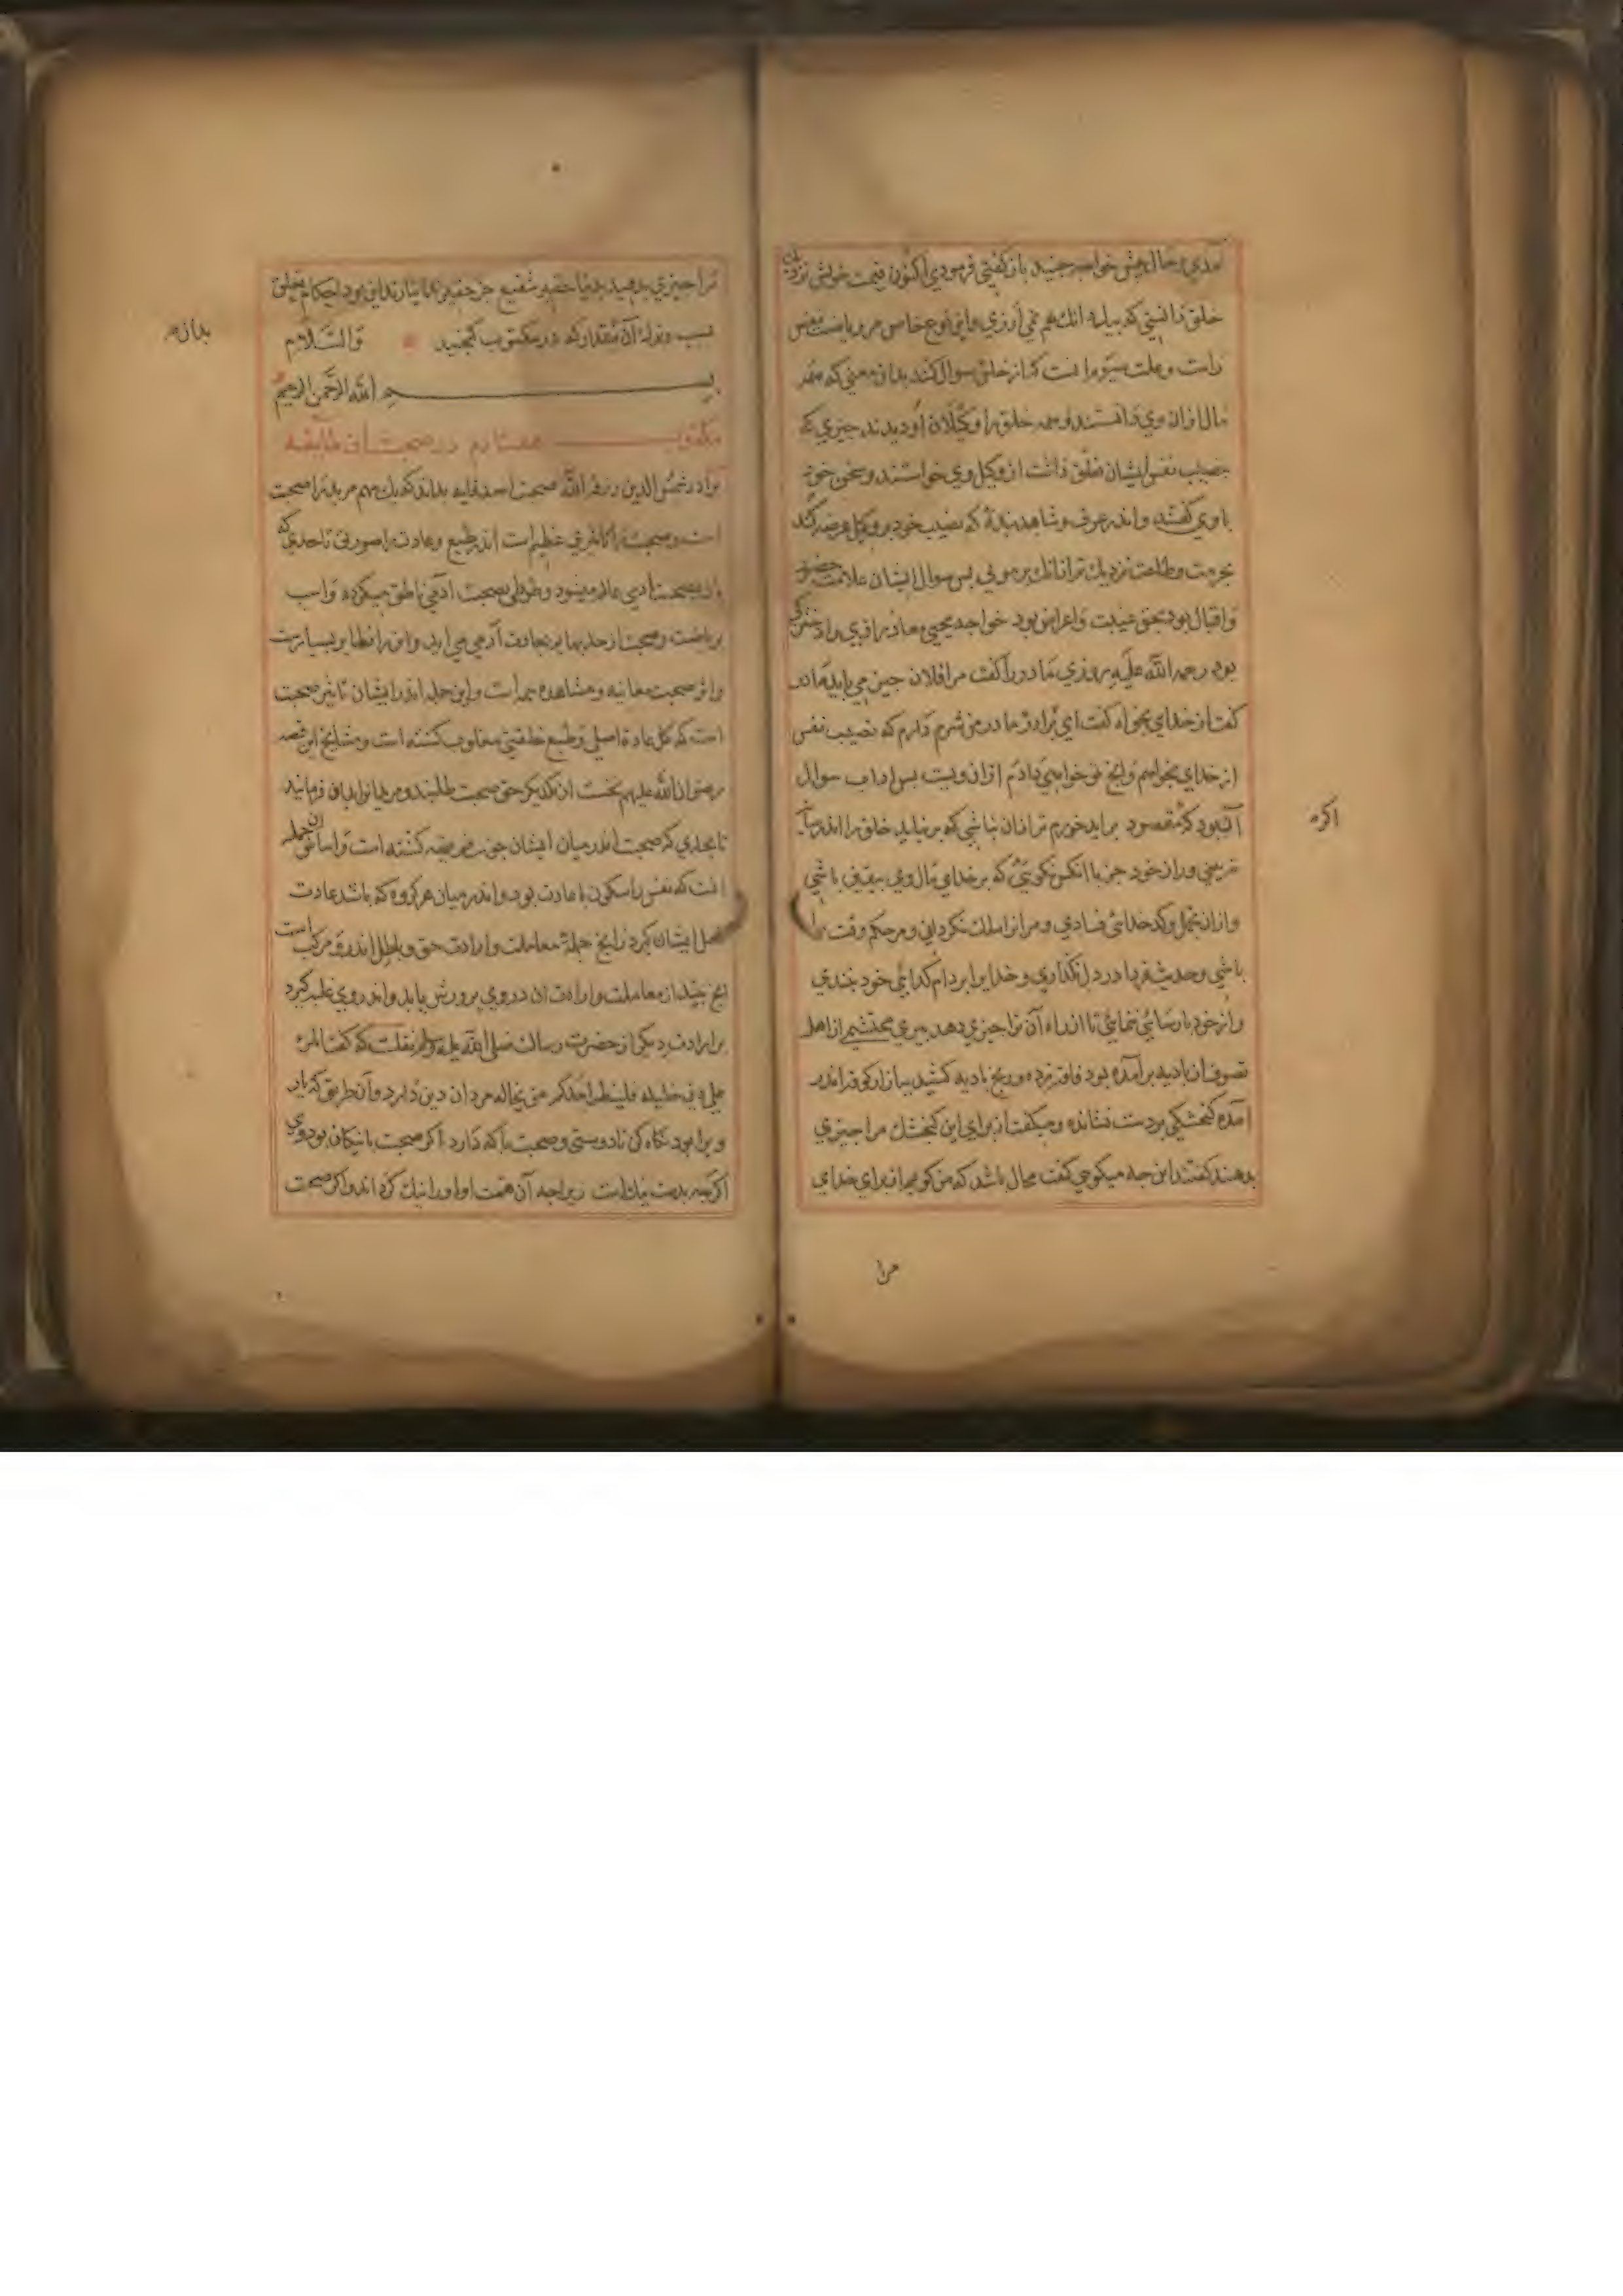 آمدي و حال پیش خواجه جنید باز گفتي فرمودي اکنون قیمت خویش نزدیك
خلق دانستي که بیك دانك هم نمي ارزي و این نوع خاص مر ریاضت نفس
راست و علت سیوم انست که از خلق سوال کنند بدان معني که همه
مال ازان وي دانستند و همه خلق را وکیلان او دیدند چیزي که
بنصیب نفس ایشان تعلق داشت از وکیل وي خواستند و سخن خود
با وي گفتند و اندر عرف و شاهد بندهٔ که نصیب خود بر وکیل عرضه کند
بحرمت و طاعت نزدیك تر ازانك بر مولي پس سوال ایشان علامت حضور
و اقبال بود بحق نه غیبت و اعراض بود خواجه یحیي معاذ رازي را دختري
بود رحمه الله علیه روزي مادر را گفت مرا فلان چیز مي باید مادر
گفت از خداي بخواه گفت اي مادر من شرم دارم که نصیب نفس
از خداي بخواهم و انچ تو خواهي داد هم ازان ویست پس اداب سوال
آنبود که مقصود بر اید خورم تر ازان نباشي که بر نیاید خلق را اندر میان
نه بیني و ران خود جز با انکس نگوئي که بر خداي مال وي بیقین باشي
و ازان تجمل و کدخدائي نسازي و مر انرا ملك نگرداني و مر حکم وقت را
باشي و حدیث فردا در دل نگذاري و خدایرا بر دام گدائي خود نبندي
و از خود پارسائي ننمائي تا از راه آن ترا چیزي دهد پیري محتشم از اهل
تصوف از بادیه بر آمده بود فاقه زده و رنج بادیه کشیده ببازار کوفه اندر
آمده گنجشکي بر دست نشانده و میگفت از براي این گنجشك مرا چیزي
بدهند گفتند این چه میگوئي گفت محال باشد که من گویم از براي خداي
اکره
مرا
ترا چیزي بدهید بدنیا حقیر شفیع جز حقیر نیارند این بود احکام تعلق
بسب و ترك آن مقدار که در مکتوب گنجید والسلام
بسم الله الرحمن الرحیم
مکتوب هفتادم در صحبت این طایفه
برادر شمس الدین رزقه الله صحبت اسد قایه بداند که یك مهم مریدرا صحبت
است و صحبت را تاثیري عظیم است اندر طبع و عادت را صورتي تا حدي که
باز بصحبت آدمي عالم میشود و طوطي بصحبت آدمي ناطق میگردد و اسب
بریاضت و صحبت از حد بهایم بعادت آدمي مي اید و این را نظایر بسیارست
و اثر صحبت معاینه و مشاهده همه است و این جمله اندر ایشان تاثیر صحبت
است که کل عادة اصلي و طبع خلقتي مغلوب گشته است و مشایخ این قصه
رضوان الله علیهم نخست از یکدیگر حق صحبت طلبند و مریدانرا بدان فرمایند
تا بحدي که صحبت اندر میان ایشان چون فریضه گشته است و اساس این جمله
انست که نفس را سکون با عادت بود و اندر میان هر گروه که باشد عادت
و فعل ایشان گیرد زانچ جملهٔ معاملت و ارادت حق و باطل اندرو مرکب است
انچ بیند از معاملت و ارادت ان در وي پرورش یابد و اندر وي غلبه گیرد
بر ارادت دیگر از حضرت رسالت صلي الله علیه وسلم نقلست که گفت المرء
علي دین خلیله فلینظر احدکم من یخالله مردان دین دارد و آن طریق که یار
ویرا بود نگاه کن تا دوستي و صحبت با که دارد اگر صحبت با نیکان بود وي
اگرچه بدست نیك است زیراچه آن همت او او را نیك گرداند و اگر صحبت